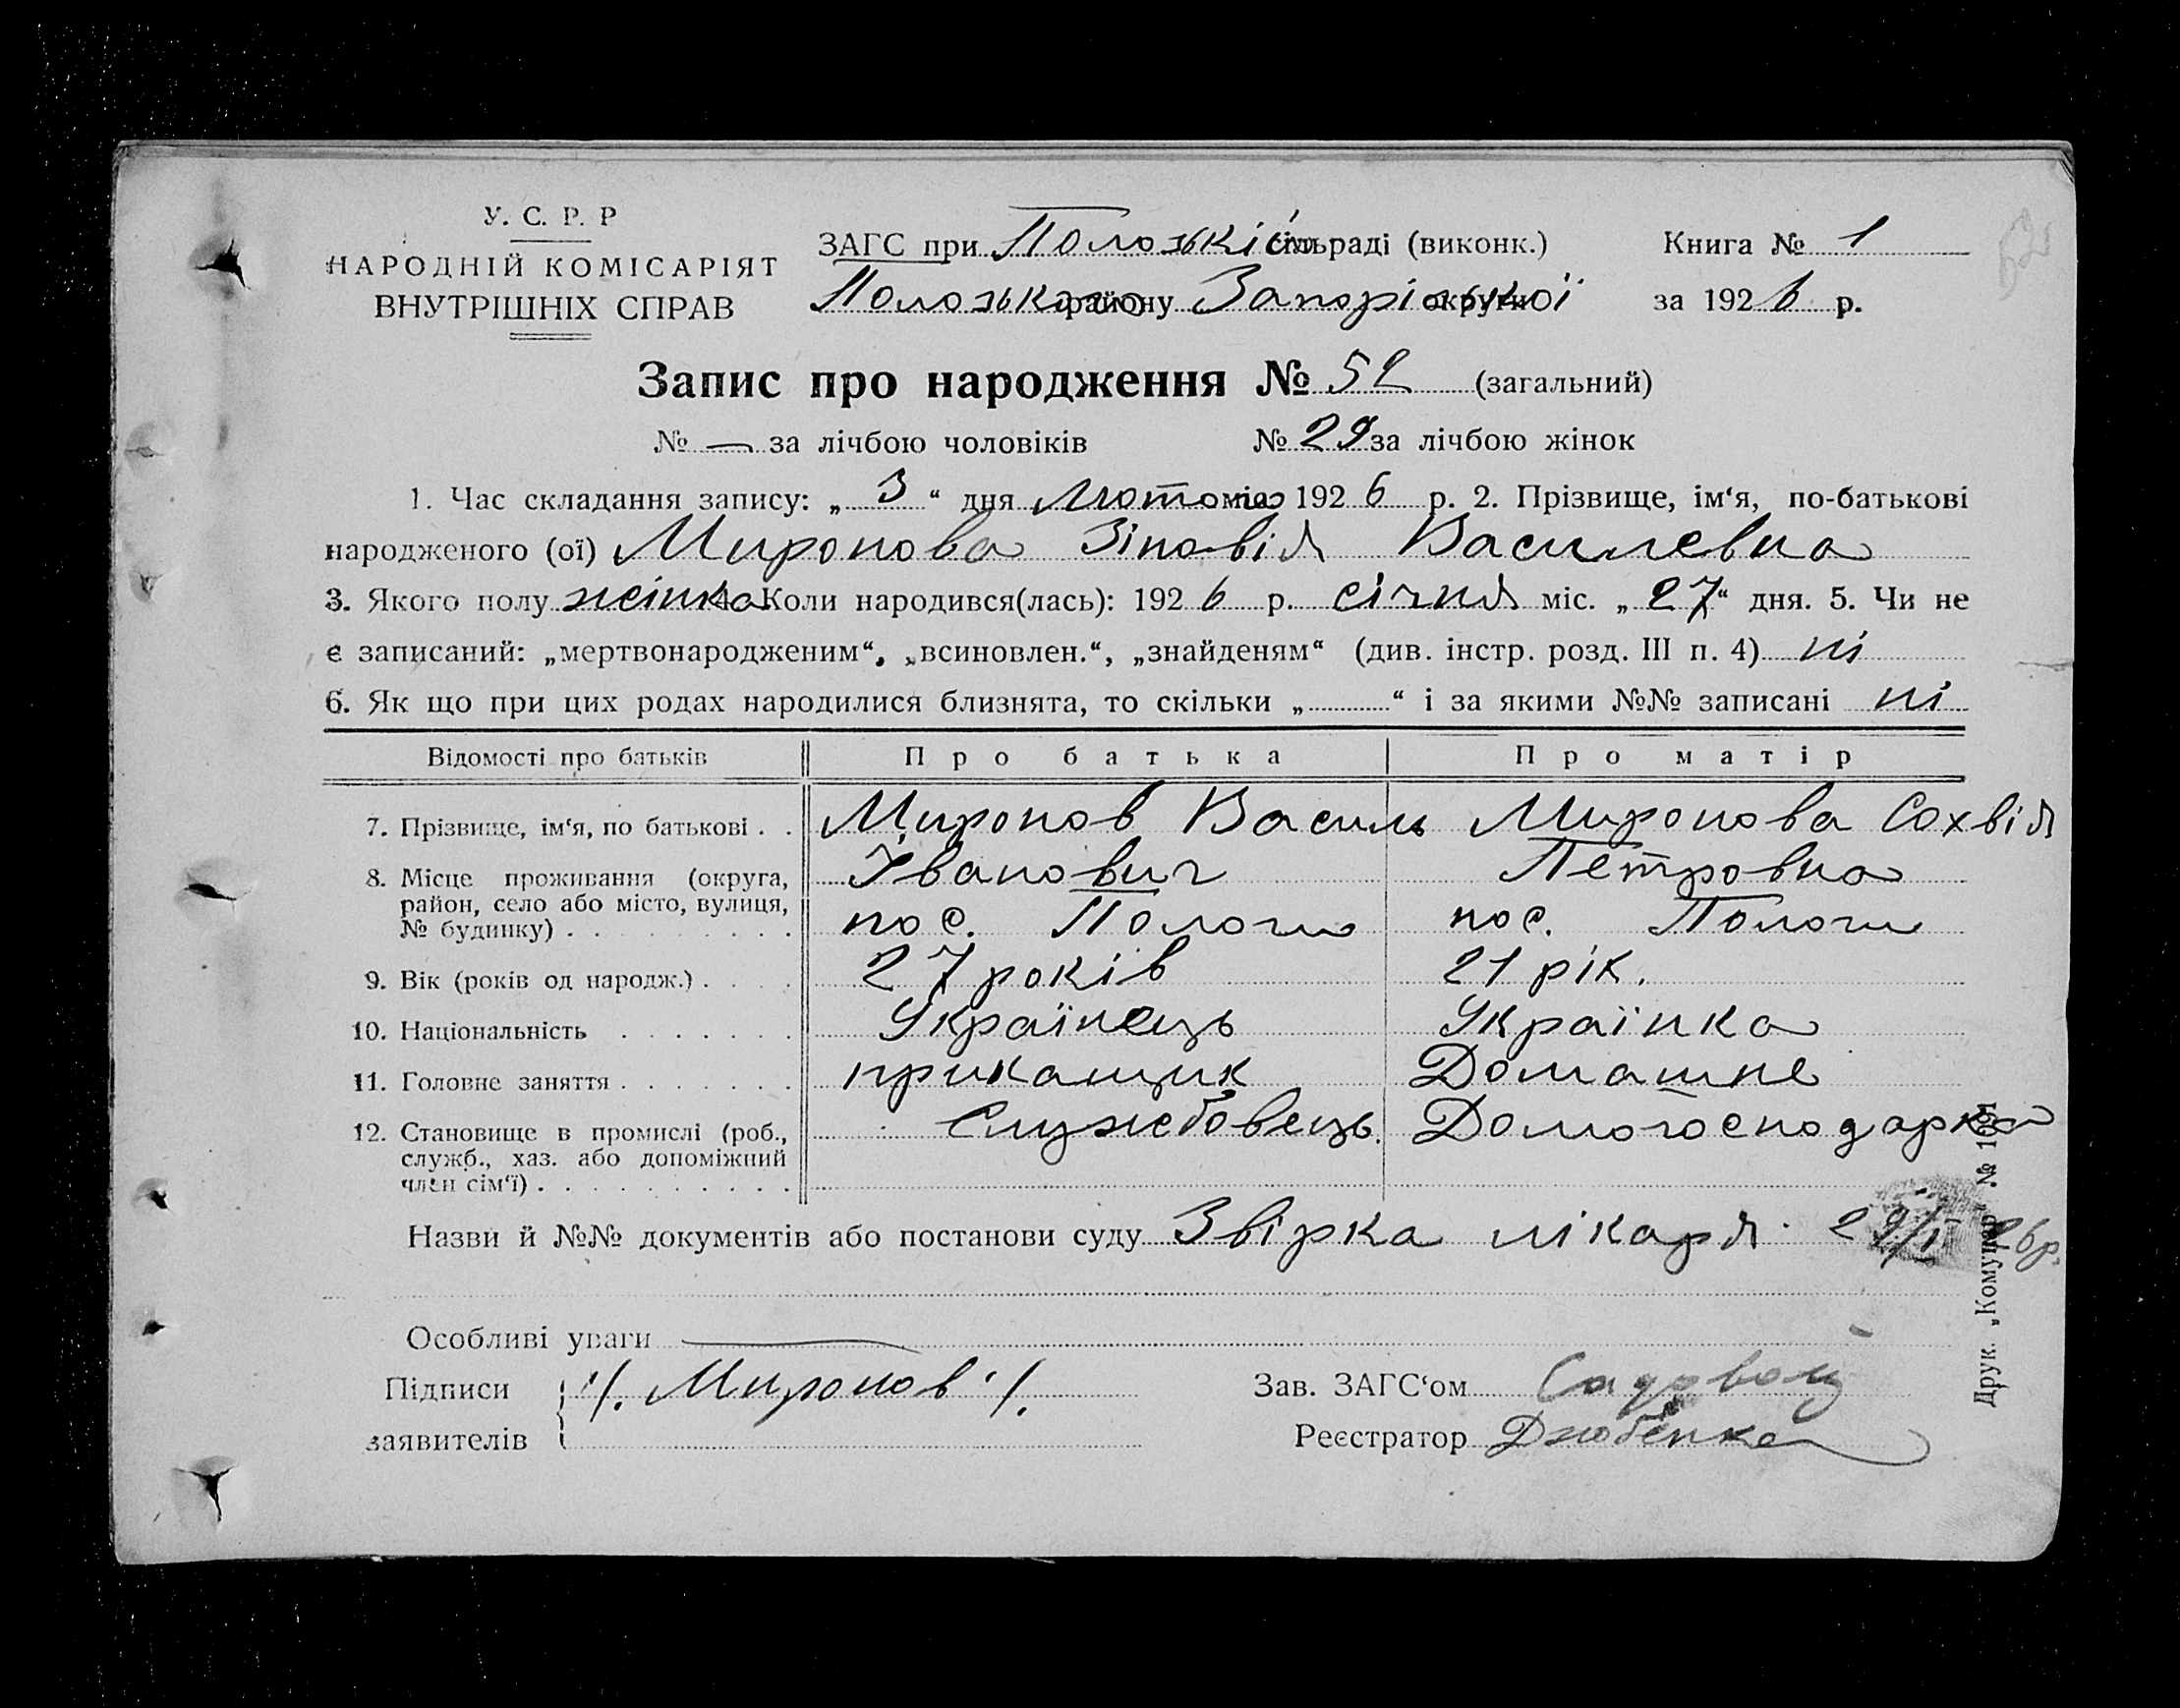 У. С. Р. Р
НАРОДНІЙ КОМІСАРІЯТ
ВНУТРІШНІХ СПРАВ
ЗАГС при Положькій сільраді (виконк.)
Положького району Запоріської округи
Книга № 1
за 1926 р.
Запис про народження № 52 (загальний)
№ — за лічбою чоловіків № 29 за лічбою жінок
1. Час складання запису: „ 3 “ дня Лютого міс 1926 р. 2. Прізвище, ім‘я, по-батькові
народженого (ої) Миронова Зіновія Василевна
3. Якого полу жінка 4. Коли народився(лась): 1926 р. січня міс. „ 27 “ дня. 5. Чи не
є записаний: „мертвонародженим“, „всиновлен.“, „знайденям“ (див. інстр. розд. III п. 4) ні
6. Як що при цих родах народилися близнята, то скільки „ “ і за якими №№ записані ні
Відомості про батьків Про батька Про матір
7. Прізвище, ім‘я, по батькові . . Миронов Василь Миронова Сохвія
Іванович Петровна
8. Місце проживання (округа,
район, село або місто, вулиця,
№ будинку) . . . . . . . . . пос. Пологи пос. Пологи
9. Вік (років од народж.) . . . . 27 років 21 рік.
10. Національність . . . . . . . Українець Українка
11. Головне заняття . . . . . . . прикащик Домашне
12. Становище в промислі (роб.,
служб., хаз. або допоміжний
член сім‘ї) . . . . . . . . . . Службовець. Домогосподарка
Назви й №№ документів або постанови суду Звірка лікаря 29/I 26р.
Особливі уваги
Підписи
заявителів
/. Миронов /.
Зав. ЗАГС‘ом Садовой
Реєстратор
Друк. „Комунар“ №